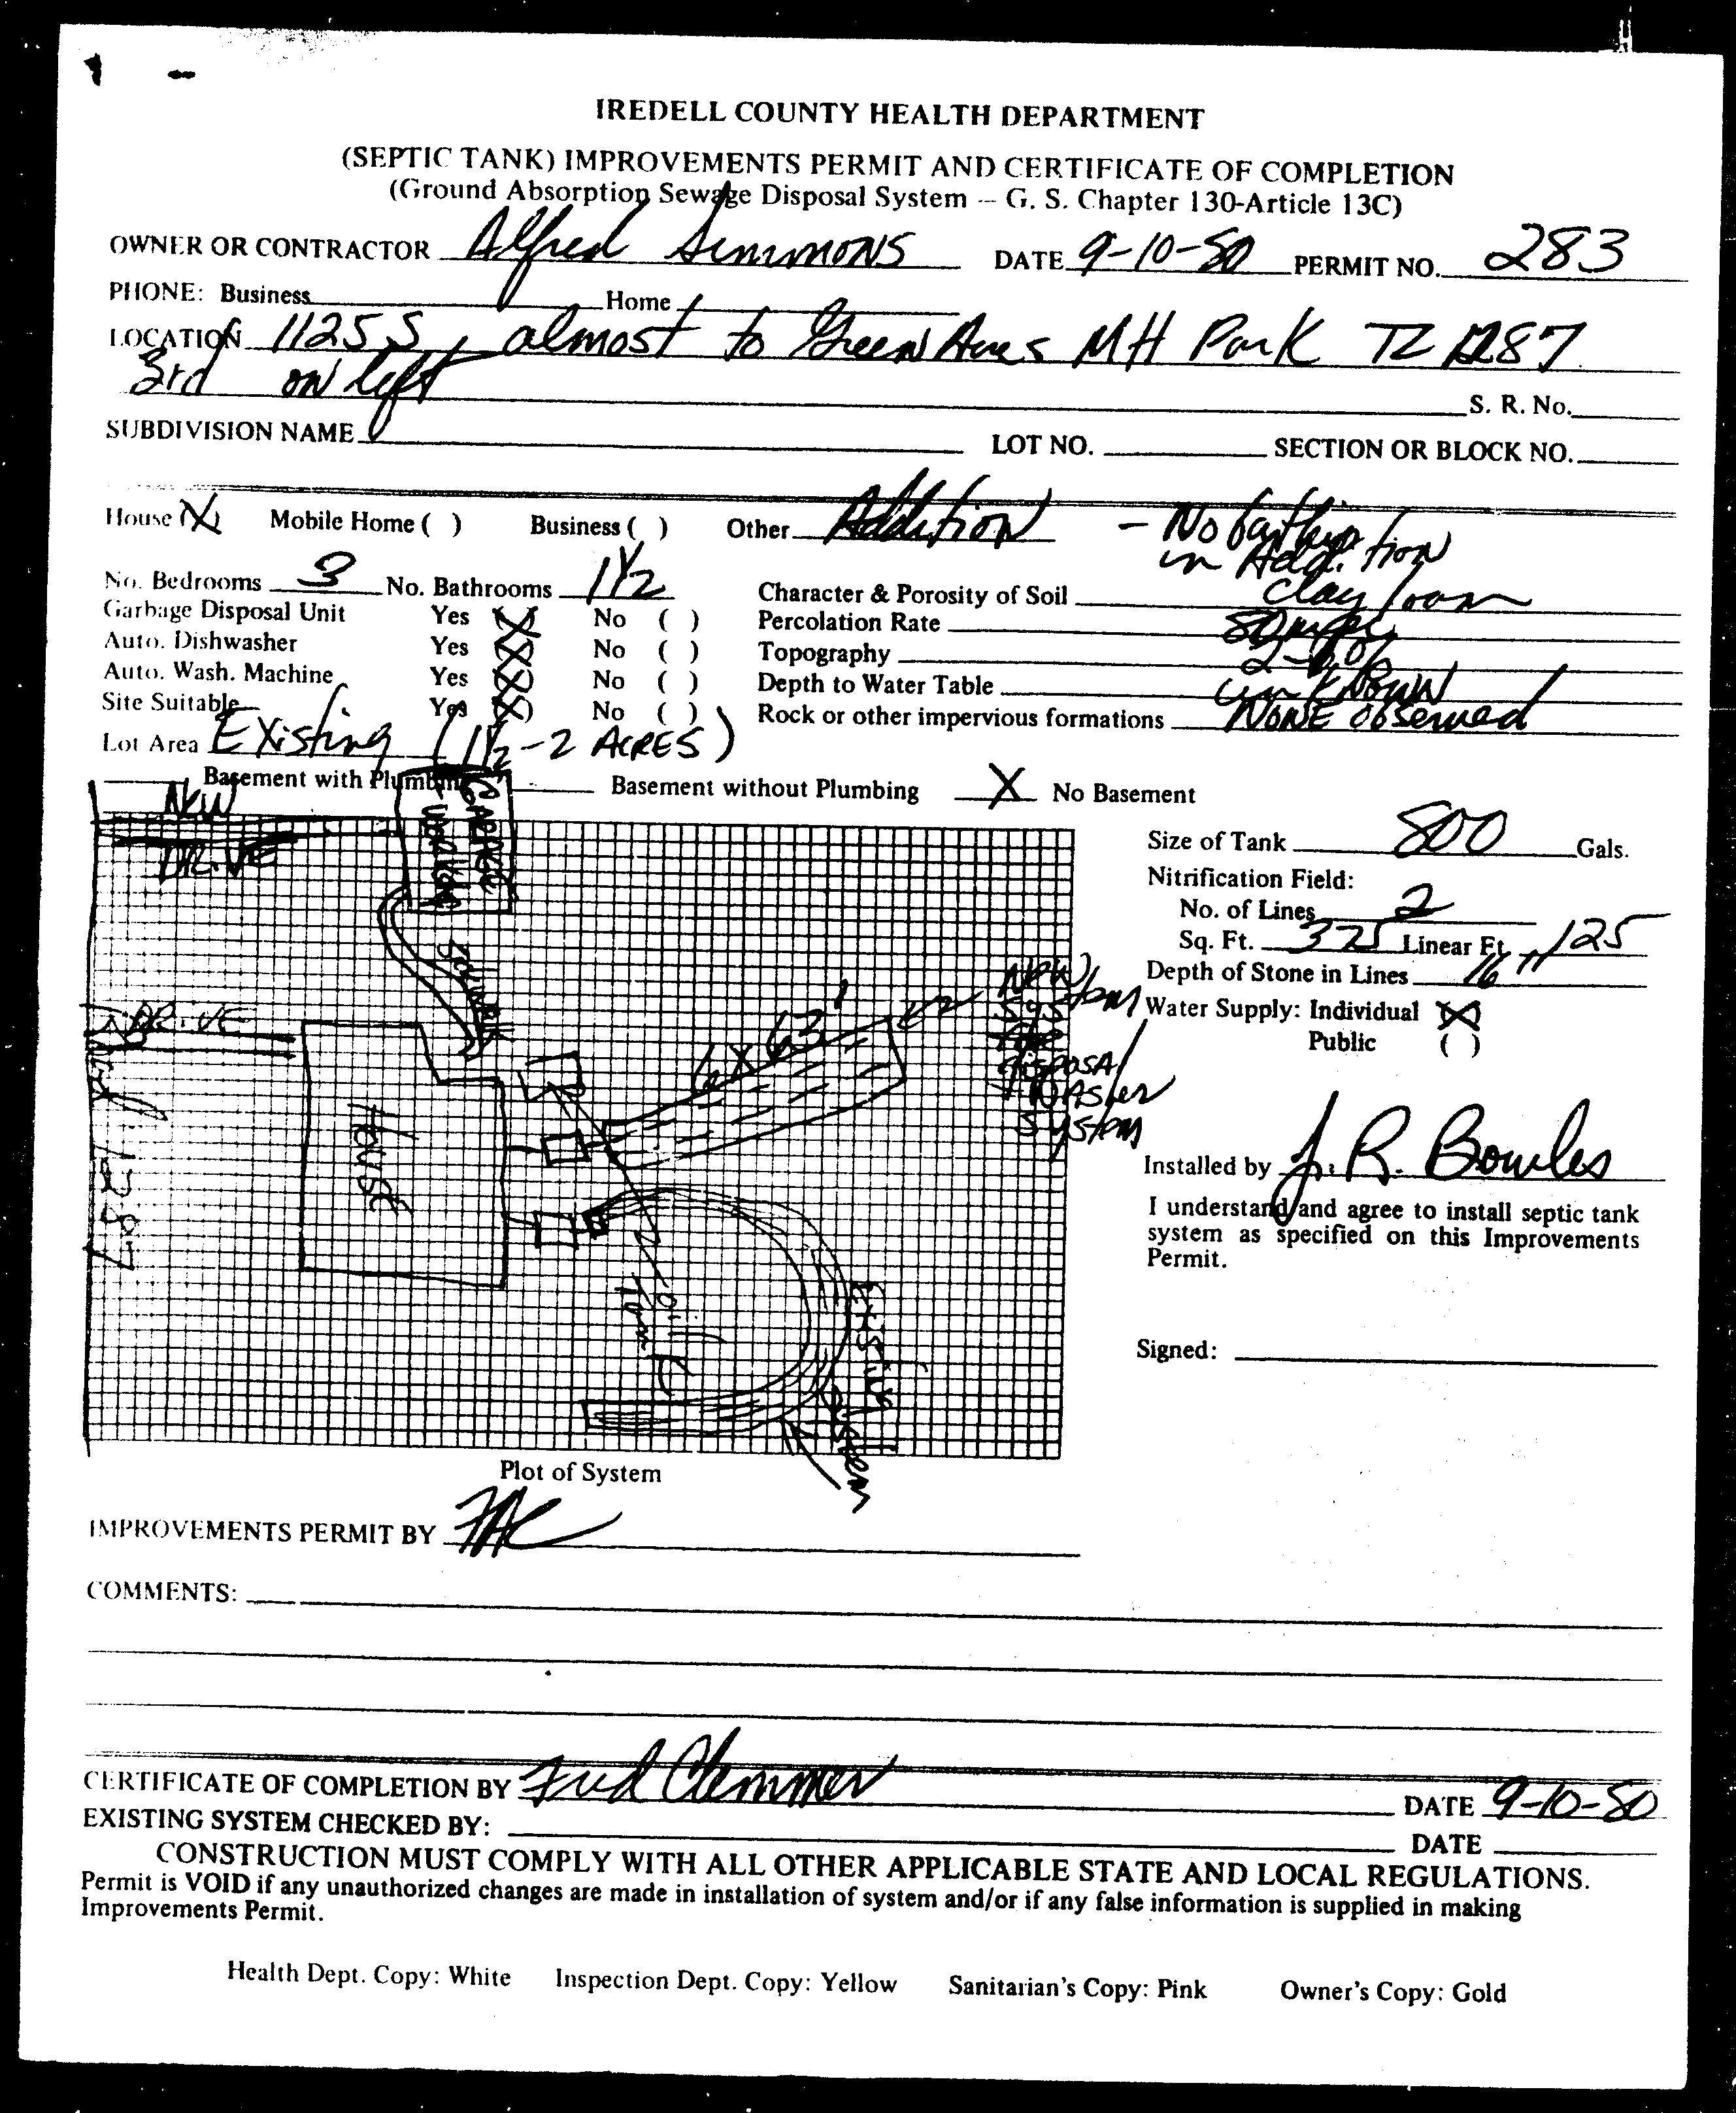 IREDELL COUNTY HEALTH DEPARTMENT
(SEPTIC TANK) IMPROVEMENTS PERMIT AND CERTIFICATE OF COMPLETION
(Ground Absorption Sewage Disposal System -- G. S. Chapter 130-Article 13C)
OWNER OR CONTRACTOR Alfred Simmons DATE 9-10-80 PERMIT NO. 283
PHONE: Business Home
LOCATION 1125 S, almost to Green Acres MH Park TL 1287
3rd on left
S. R. No.
SUBDIVISION NAME LOT NO. SECTION OR BLOCK NO.
House (X) Mobile Home ( ) Business ( ) Other Addition - No
in Addition
No. Bedrooms 3 No. Bathrooms 1 1/2 Character & Porosity of Soil clay loam
Garbage Disposal Unit Yes (X) No ( ) Percolation Rate 80
Auto. Dishwasher Yes (X) No ( ) Topography
Auto. Wash. Machine Yes (X) No ( ) Depth to Water Table unknown
Site Suitable Yes (X) No ( ) Rock or other impervious formations NONE observed
Lot Area Existing (1 1/2 - 2 ACRES)
Basement with Plumbing Basement without Plumbing X No Basement
NEW
DRIVE
GARAGE
DRIVE
HOUSE
1287
6 x 63'
New
System
for
disposal
+ WAsher
System
EXISTING
System
Size of Tank 800 Gals.
Nitrification Field:
No. of Lines 2
Sq. Ft. 375 Linear Ft. 125
Depth of Stone in Lines 16"
Water Supply: Individual (X)
Public ( )
Installed by J. R. Bowles
I understand and agree to install septic tank
system as specified on this Improvements
Permit.
Signed:
Plot of System
IMPROVEMENTS PERMIT BY
COMMENTS:
CERTIFICATE OF COMPLETION BY Fred Clemmer DATE 9-10-80
EXISTING SYSTEM CHECKED BY: DATE
CONSTRUCTION MUST COMPLY WITH ALL OTHER APPLICABLE STATE AND LOCAL REGULATIONS.
Permit is VOID if any unauthorized changes are made in installation of system and/or if any false information is supplied in making
Improvements Permit.
Health Dept. Copy: White Inspection Dept. Copy: Yellow Sanitarian's Copy: Pink Owner's Copy: Gold